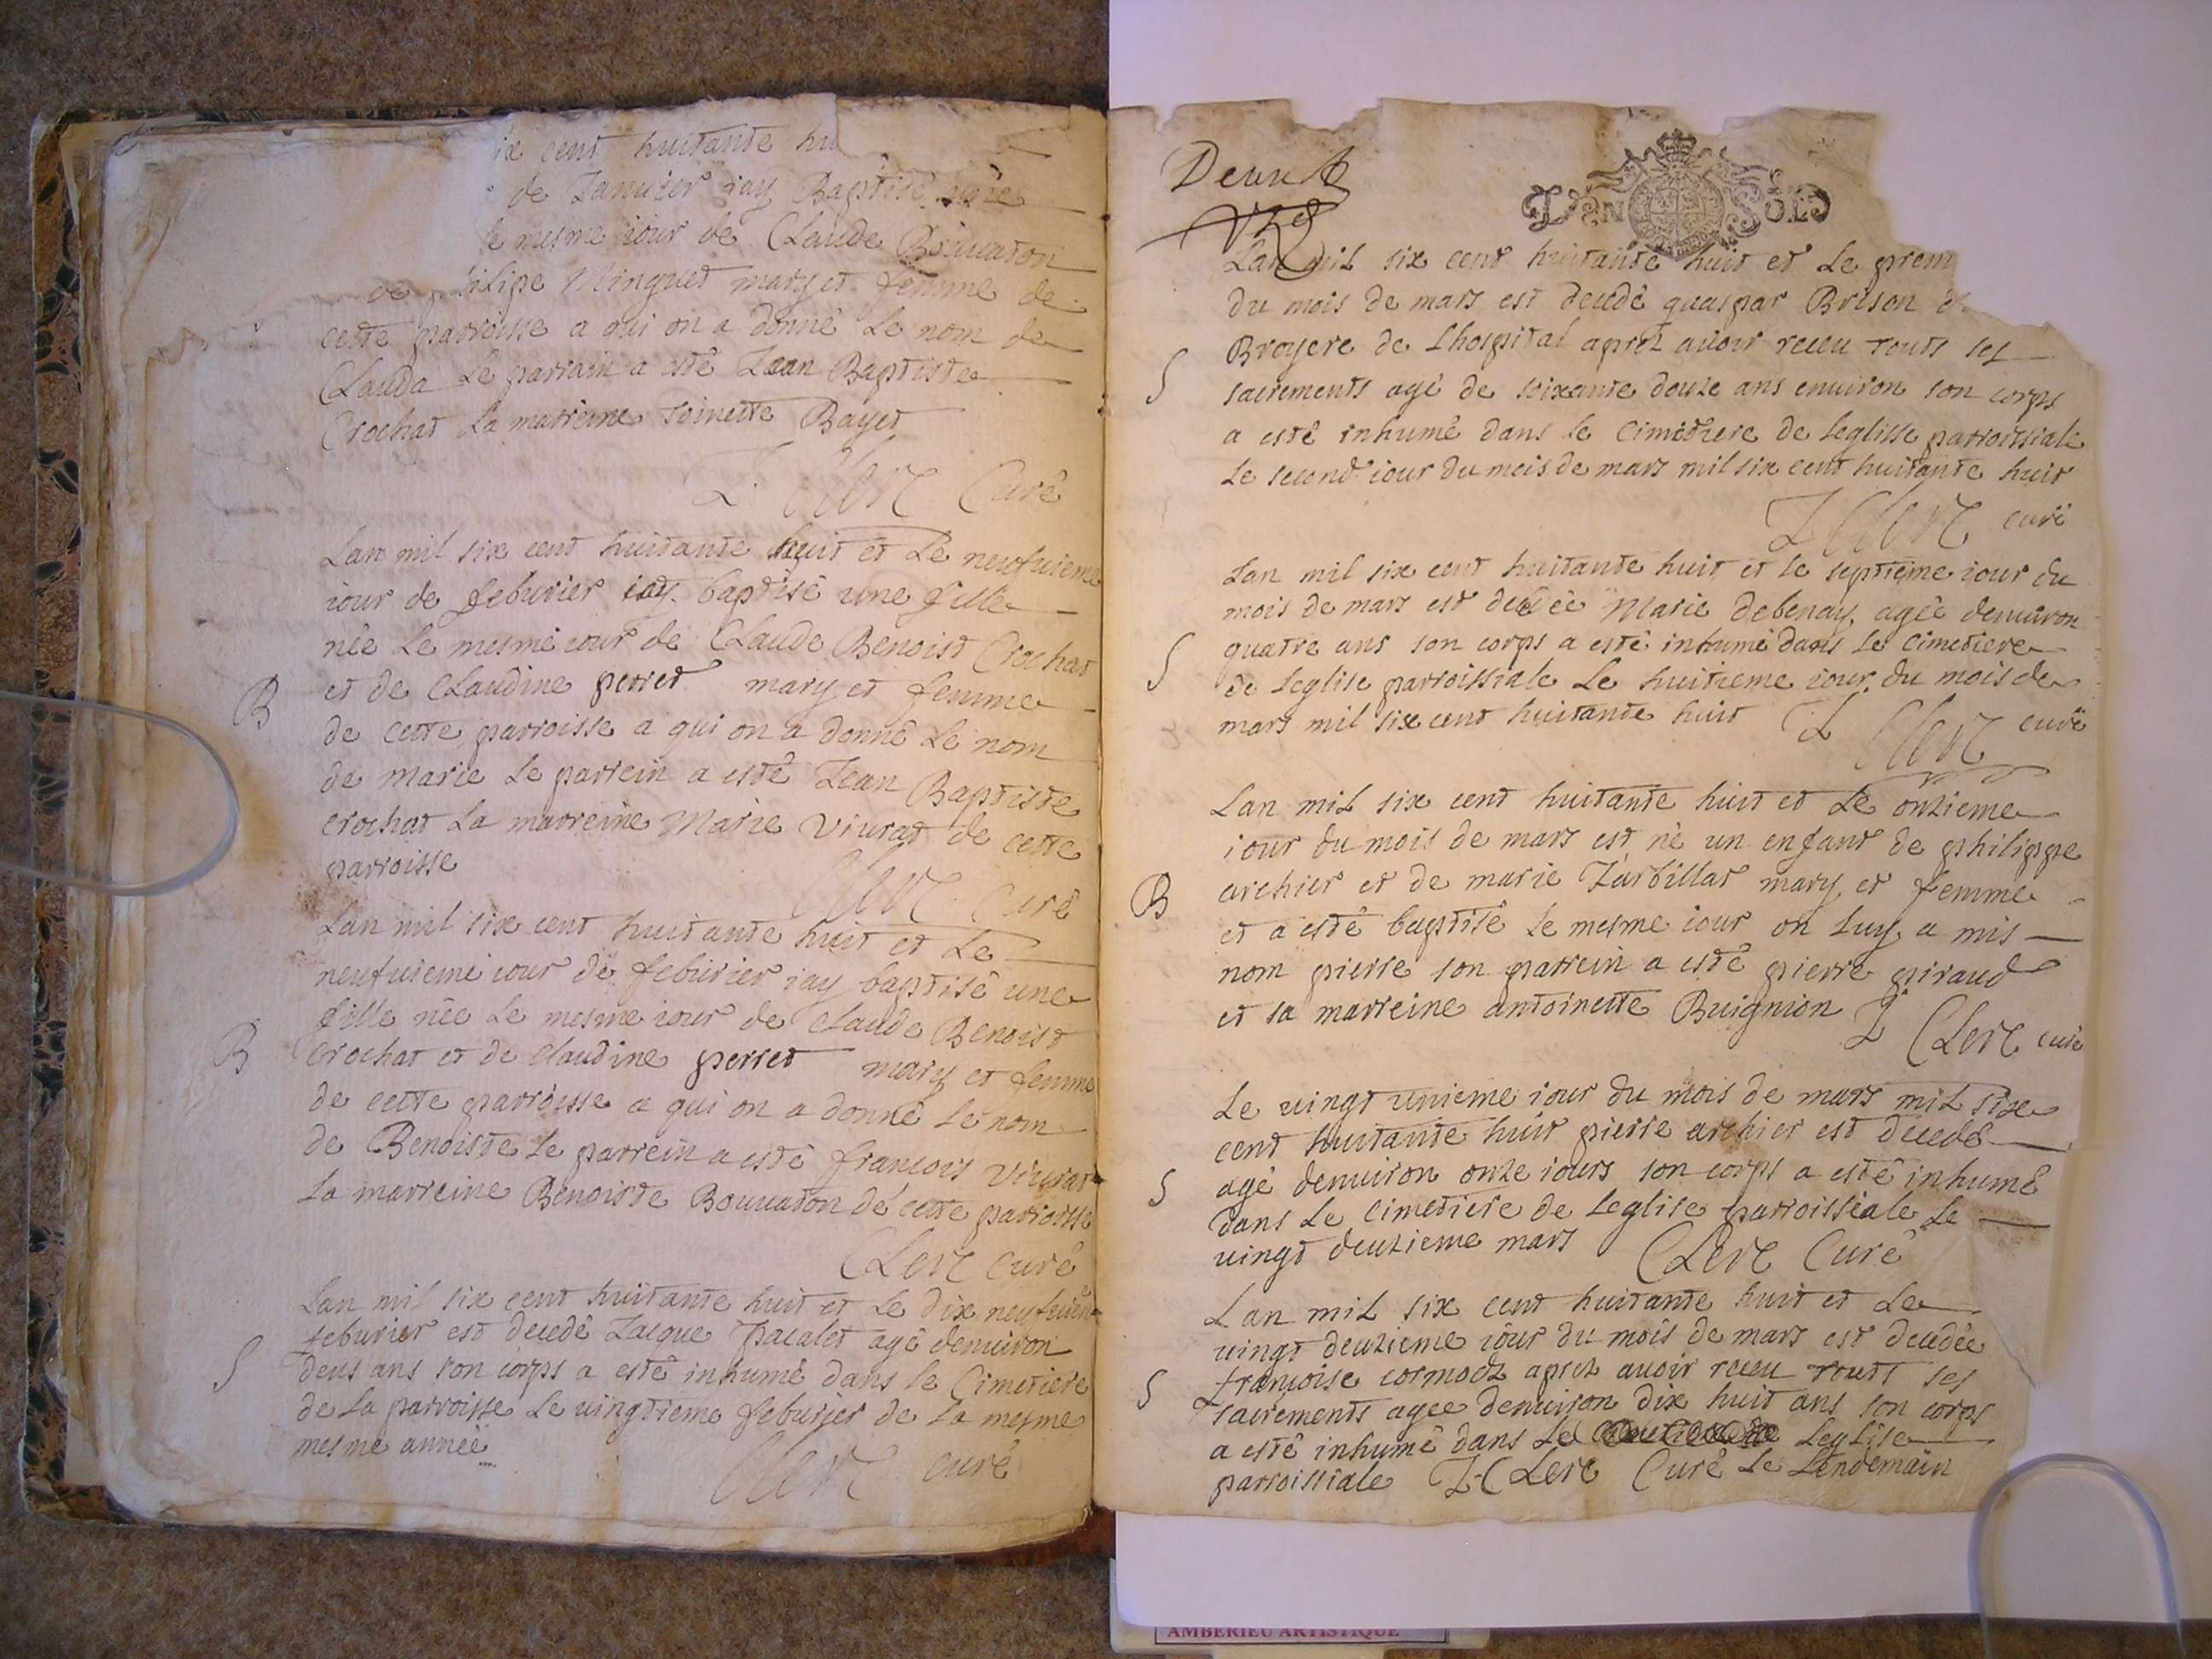 ix cent huitante hu
de Januier iay Baptisé née
le mesme iour de Claude Bouuaton
de philipe Minguet mary et femme de
cette parroisse a qui on a donné le nom de
Clauda le parrain a esté Jean Baptiste
Crochat la marreine toinette Bayet
J. Clerc Curé
Lan mil six cent huitante huit et le neufuieme
iour de feburier iay baptisé une fille
née le mesme iour de Claude Benoist Crochat
B et de Claudine perret mary et femme
de cette parroisse a qui on a donné le nom
de marie le parrein a esté Jean Baptiste
crochat la marreine Marie Viurat de cette
parroisse
Clerc Curé
Lan mil six cent huitante huit et le
neufuieme iour de feburier iay baptisé une
fille née le mesme iour de Claude Benoist
B Crochat et de Claudine perret mary et femme
de cette parroisse a qui on a donné le nom
de Benoiste le parrein a esté francois Viurat
la marreine Benoiste Bouuaton de cette parroisse
Clerc curé
Lan mil six cent huitante huit et le dix neufuieme
feburier est decedé Jacque pacalet agé denuiron
S deus ans son corps a esté inhumé dans le Cimetiere
de la parroisse le uingtieme feburier de la mesme
mesme année
Clerc curé
Deux
Lan mil six cent huitante huit et le prem
du mois de mars est decedé guaspar Brison
Broyere de lhospital aprez auoir receu touts ses
S sacrements agé de soixante douze ans enuiron son corps
a esté inhumé dans le Cimetiere de leglisse parroissiale
le second iour du mois de mars mil six cent huitante huit
J Clerc curé
Lan mil six cent huitante huit et le septieme iour du
mois de mars est decedée Marie debenay agée denuiron
S quatre ans son corps a esté inhumé dans le Cimetiere
de leglise parroissiale le huitieme iour du mois de
mars mil six cent huitante huit J Clerc curé
Lan mil six cent huitante huit et le onzieme
iour du mois de mars est né un enfant de philippe
B archier et de marie Jarbillat mary et femme
et a esté baptisé le mesme iour on luy a mis
nom pierre son parrein a esté pierre piraud
et sa marreine antoinette Buignion J Clerc curé
Le uingt unieme iour du mois de mars mil six
cent huitante huit pierre archier est decedé
S agé denuiron onze iours son corps a esté inhumé
dans le Cimetiere de leglise parroissiale le
uingt deuzieme mars Clerc Curé
Lan mil six cent huitante huit et le
uingt deuzieme iour du mois de mars est decedée
S francoise cormoz aprez auoir receu touts ses
sacrements agee denuiron dix huit ans son corps
a esté inhumé dans le leglise
parroissiale J. Clerc Curé le lendemain
AMBERIEU ARTISTIQUE